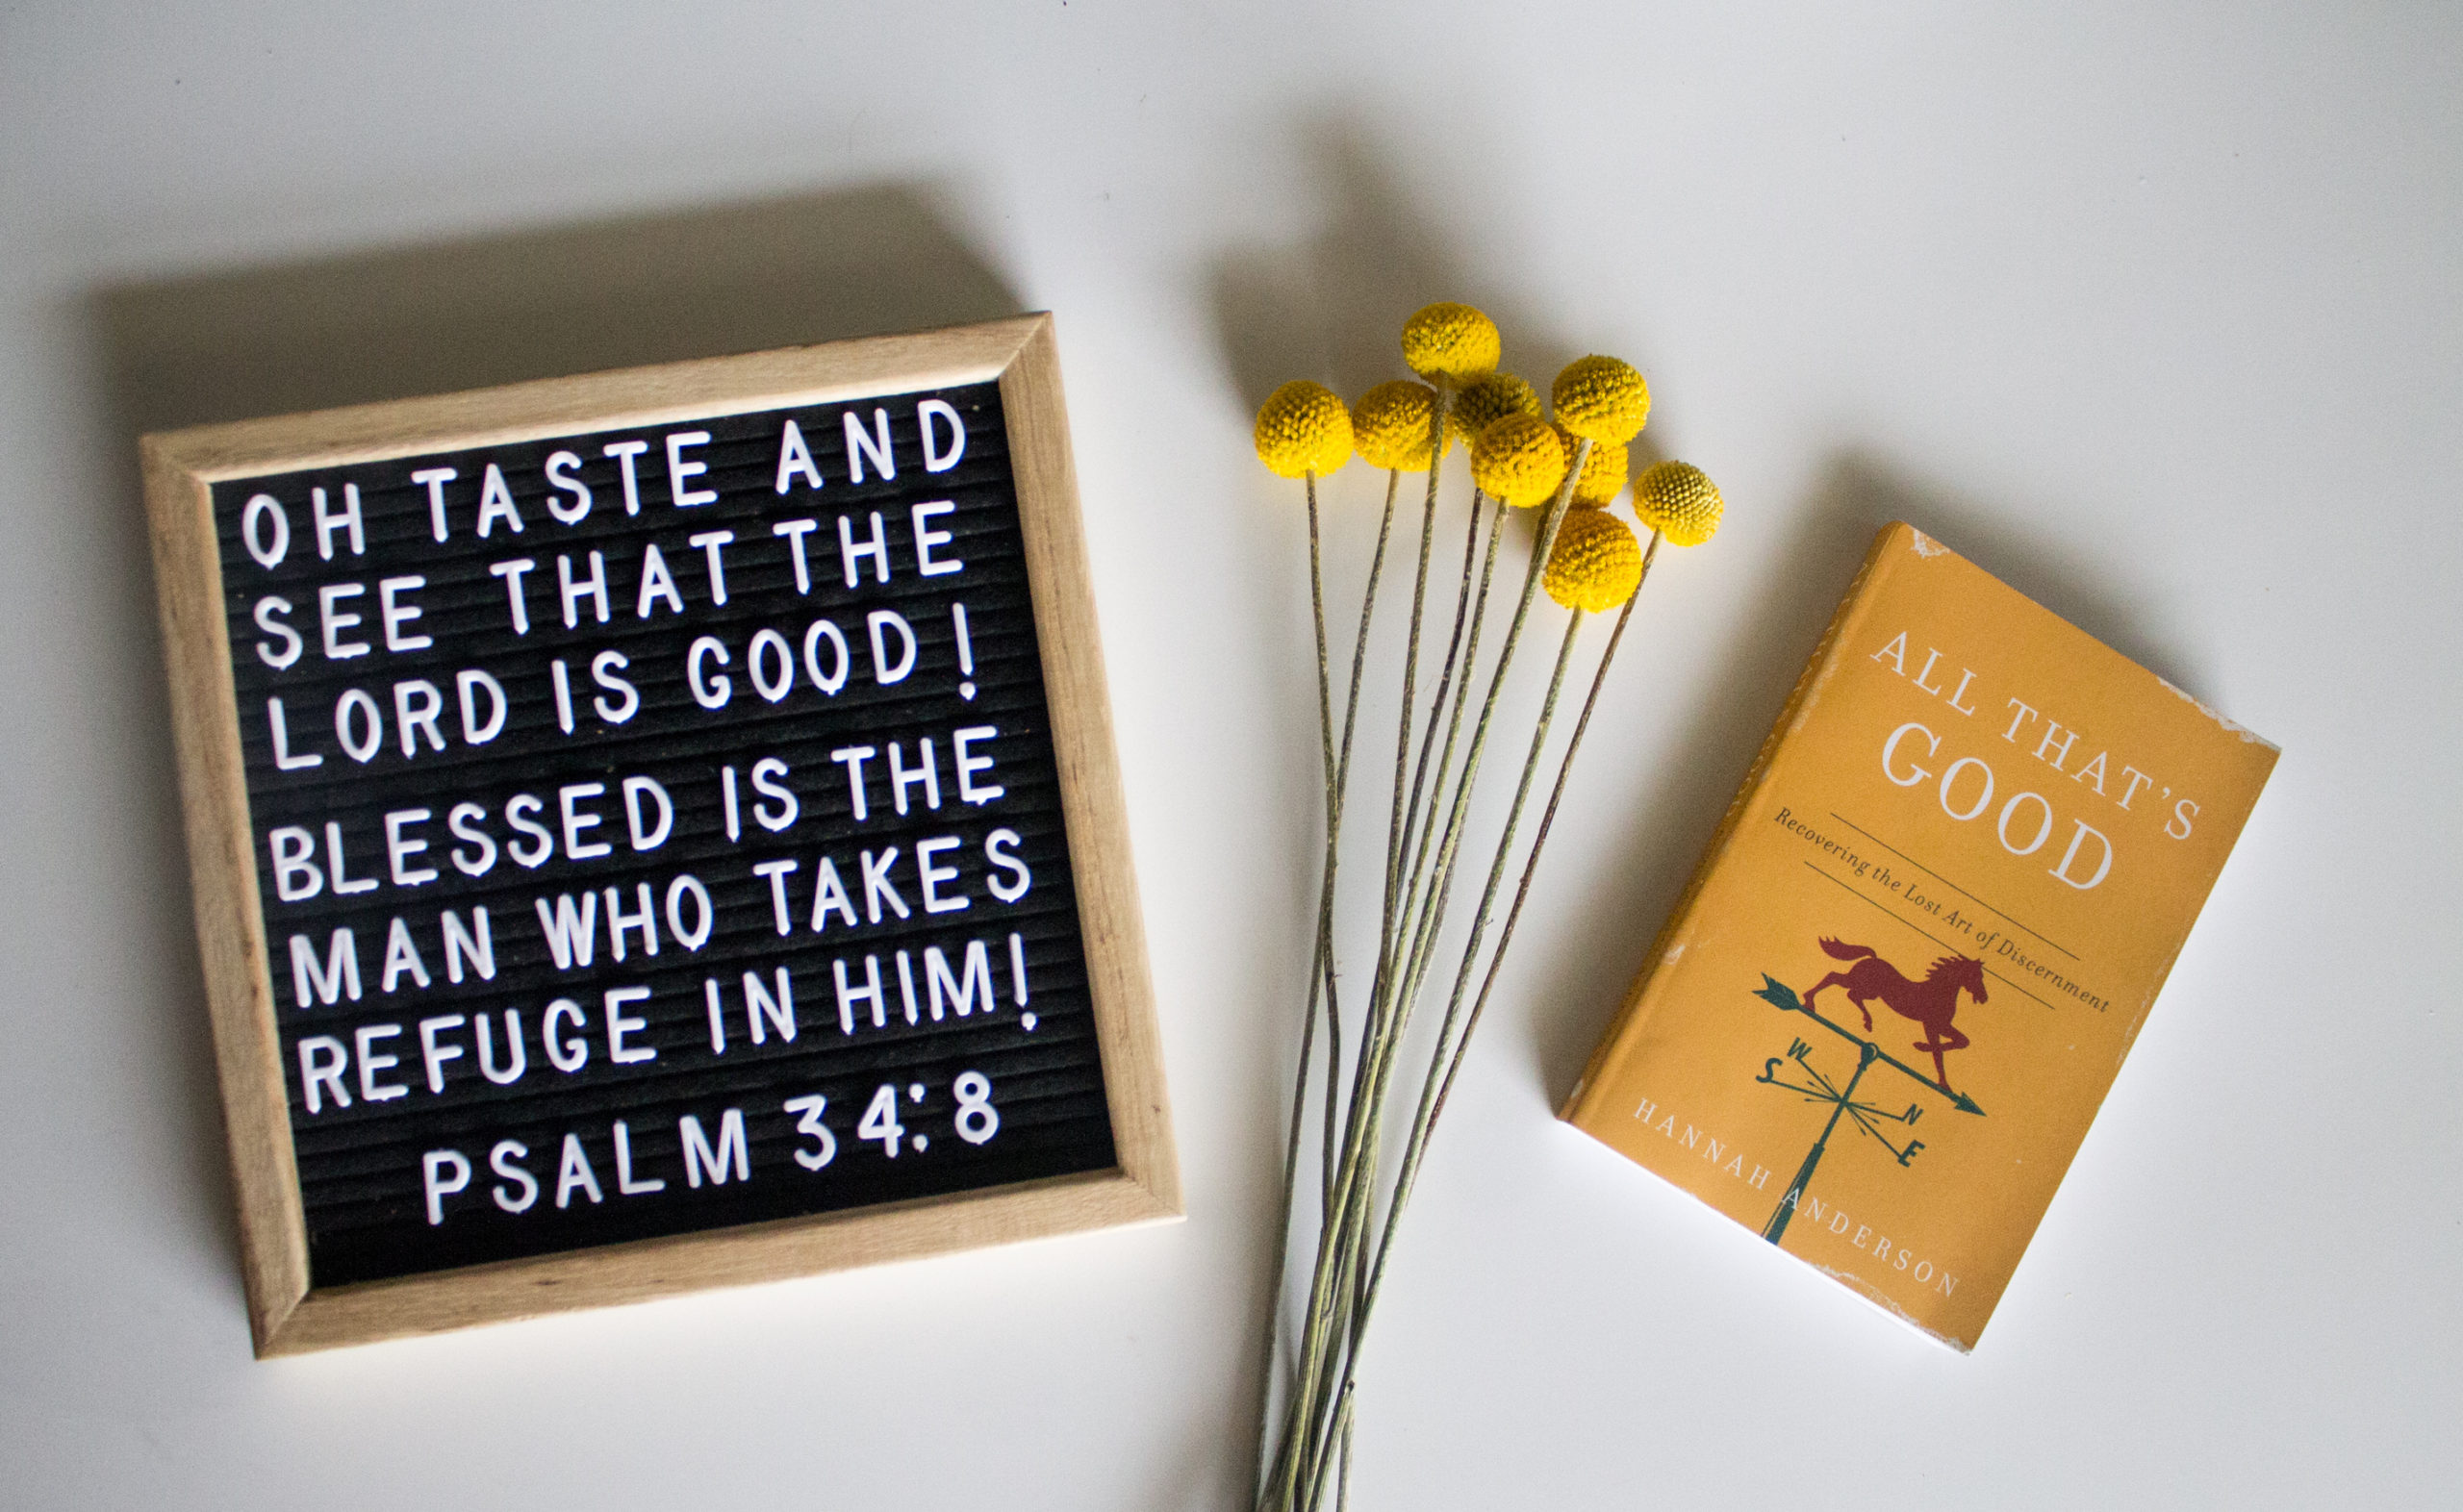 OH TASTE AND
SEE THAT THE
LORD IS GOOD!
BLESSED IS THE
MAN WHO TAKES
REFUGE IN HIM!
PSALM 34:8
ALL THAT'S
GOOD
Recovering the Lost Art of Discernment
W
S
N
E
HANNAH ANDERSON